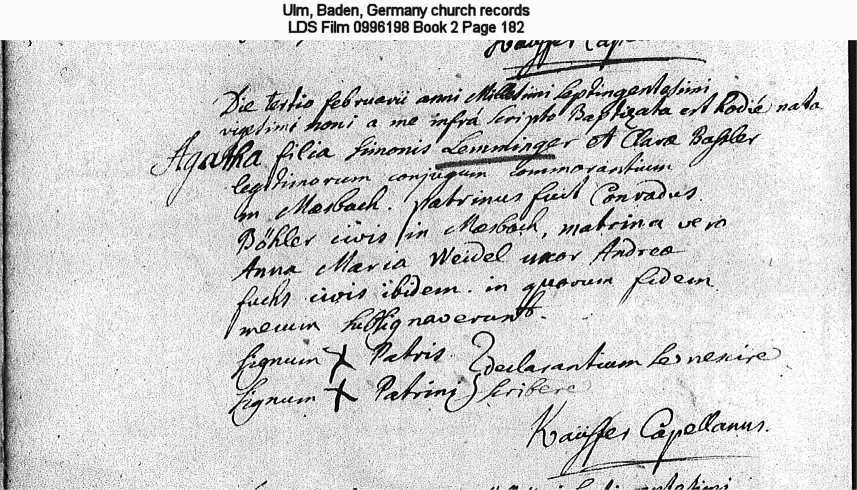 Ulm, Baden, Germany church records
LDS Film 0996198 Book 2 Page 182
Die tertio februarii anni Millesimi septingentesimi
vigesimi noni a me infra scripto Baptizata est hodie nata
Agatha filia simonis Lemminger et Clara Bassler
legitimorum conjugum commorantium
in Mœsbach. patrinus fuit Conradus
Böhler civis in Mœsbach, matrina vero
Anna Maria Weidel uxor Andreæ
fuchs civis ibidem. in quorum fidem
mecum subsignaverunt.
Signum X Patris } declarantium se nescire
Signum X Patrini } scribere
Capellanus.